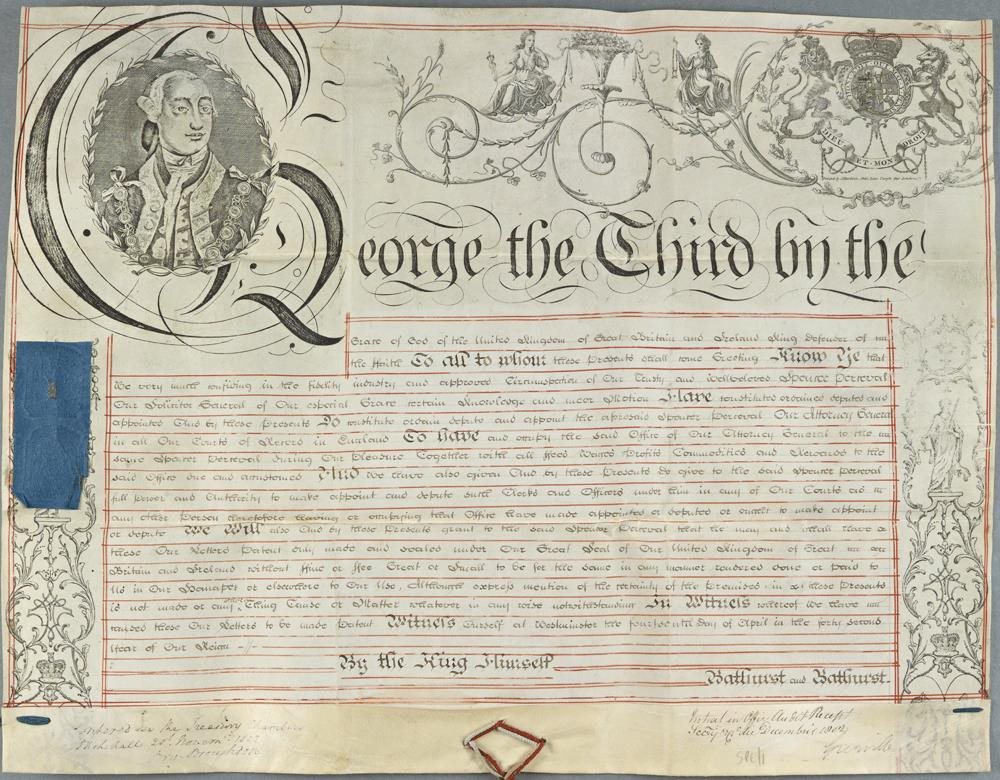 George the Third by the
Grace of God of the United Kingdom of Great Britain and Ireland King Defender of
the Faith To all to whom these Presents shall come Greeting Know Ye that
We very much confiding in the fidelity industry and approved Circumspection of Our Trusty and Wellbeloved Spencer Perceval
Our Solicitor General of Our especial Grace certain Knowledge and meer Motion Have constituted ordained deputed and
appointed And by these Presents Do constitute ordain depute and appoint the aforesaid Spencer Perceval Our Attorney General
in all Our Courts of Record in England To have and occupy the said Office of Our Attorney General to the
same Spencer Perceval during Our Pleasure Together with all ffees Wages Profits Commodities and Rewards to the
said Office due and accustomed And We have also given And by these Presents do give to the said Spencer Perceval
full Power and Authority to make appoint and depute such Clerks and Officers under him in any of Our Courts as
any other Person heretofore having or occupying that Office have made appointed or deputed or ought to make appoint
or depute We Will also And by these Presents grant to the said Spencer Perceval that he may and shall have
these Our Letters Patent duly made and sealed under Our Great Seal of Our United Kingdom of Great
Britain and Ireland without ffine or ffee Great or Small to be for the same in any manner rendered done or paid to
Us in Our Hanaper or elsewhere to Our Use, Although express mention of the certainty of the Premises in these Presents
is not made or any Thing Cause or Matter whatever in any wise notwithstanding In Witness whereof We have
caused these Our Letters to be made Patent Witness Ourself at Westminster the fourteenth day of April in the forty second
Year of Our Reign
By the King Himself
Bathurst and Bathurst.
DIEU ET MON DROIT
Entered in the Treasury Chambers
Whitehall 20th Novemr